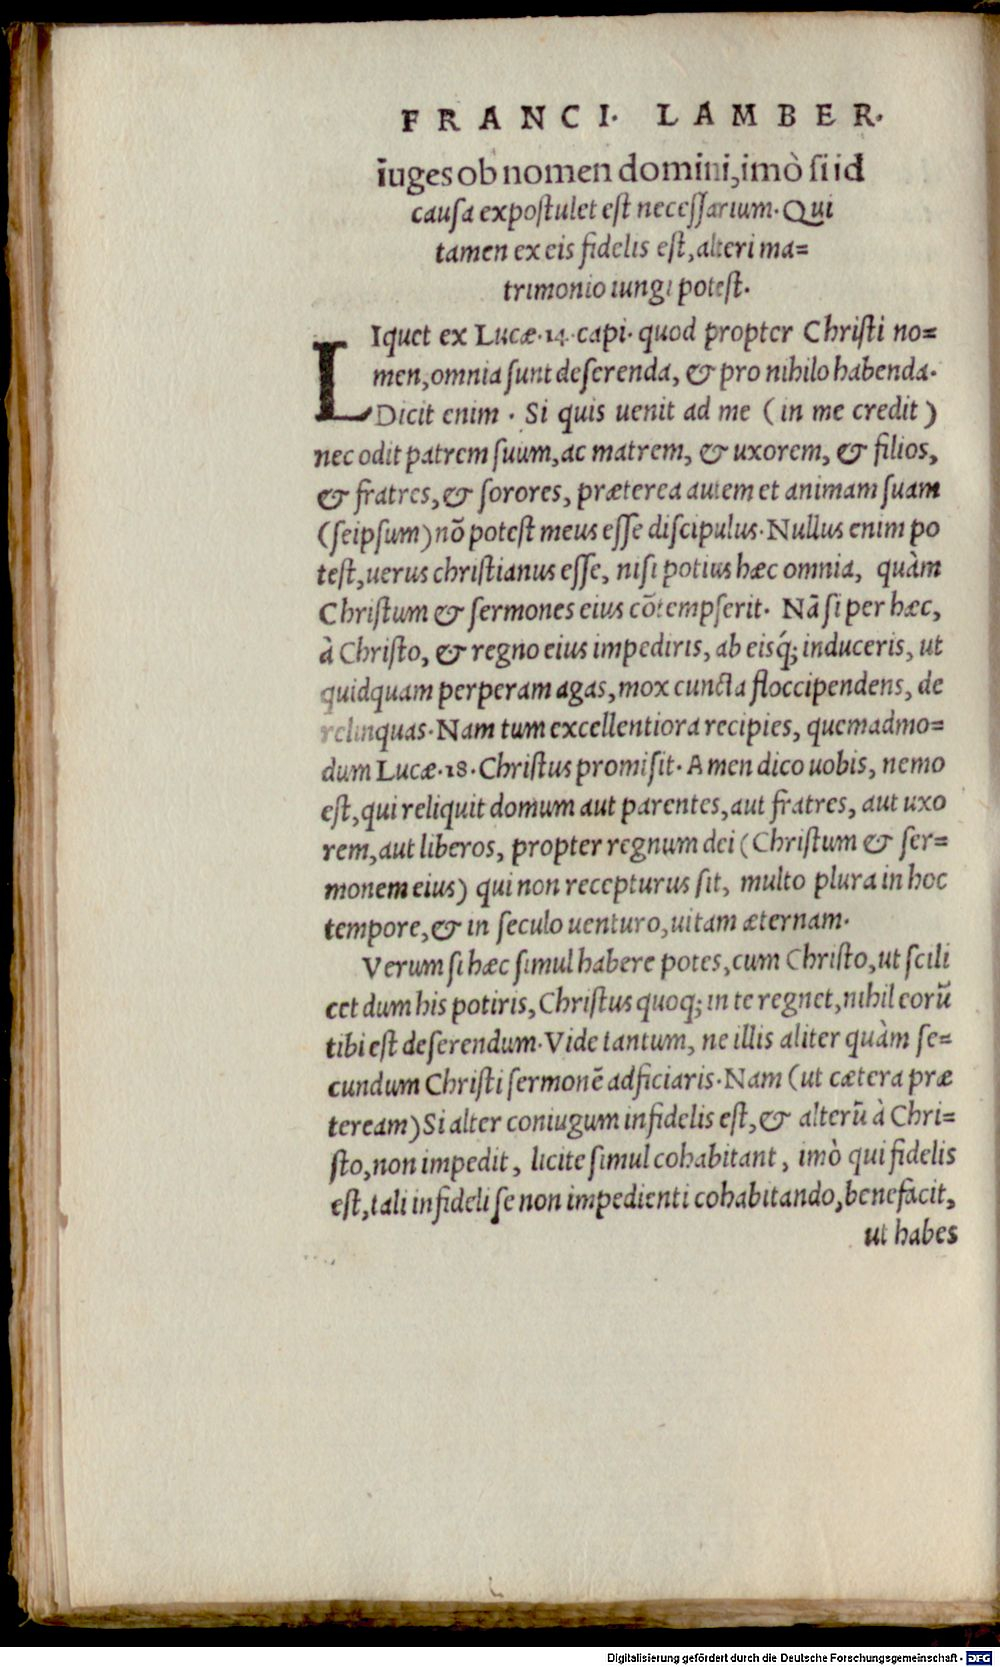 FRANCI. LAMBER.
iūges ob nomen domini, imò si id
causa expostulet est necessarium. Qui
tamen ex eis fidelis est, alteri ma=
trimonio iungi potest.
LIquet ex Lucæ. 14. capi. quod propter Christi no=
men, omnia sunt deserenda, & pro nihilo habenda.
Dicit enim. Si quis uenit ad me (in me credit)
nec odit patrem suum, ac matrem, & uxorem, & filios,
& fratres, & sorores, præterea autem et animam suam
(seipsum) nõ potest meus esse discipulus. Nullus enim po
test, uerus christianus esse, nisi potius hæc omnia, quàm
Christum & sermones eius cõtempserit. Nã si per hæc,
à Christo, & regno eius impediris, ab eisq́; induceris, ut
quidquam perperam agas, mox cuncta floccipendens, de
relinquas. Nam tum excellentiora recipies, quemadmo=
dum Lucæ. 18. Christus promisit. Amen dico uobis, nemo
est, qui reliquit domum aut parentes, aut fratres, aut uxo
rem, aut liberos, propter regnum dei (Christum & ser=
monem eius) qui non recepturus sit, multo plura in hoc
tempore, & in seculo uenturo, uitam æternam.
Verum si hæc simul habere potes, cum Christo, ut scili
cet dum his potiris, Christus quoq; in te regnet, nihil eorũ
tibi est deserendum. Vide tantum, ne illis aliter quàm se=
cundum Christi sermonẽ adficiaris. Nam (ut cætera præ
teream) Si alter coniugum infidelis est, & alterũ à Chri=
sto, non impedit, licite simul cohabitant, imò qui fidelis
est, tali infideli se non impedienti cohabitando, benefacit,
ut habes
Digitalisierung gefördert durch die Deutsche Forschungsgemeinschaft - DFG